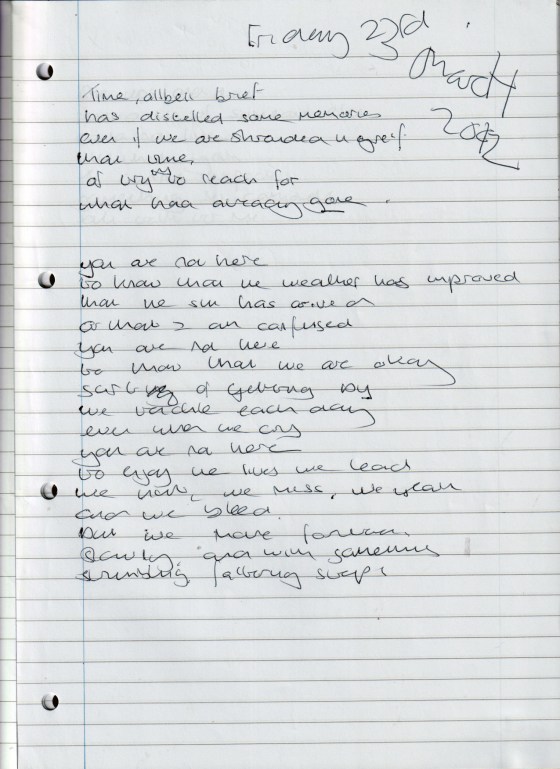 Friday 23rd
March
2012
Time, allbeit brief
has distelled some memories
even if we are shrouded in grief
that time,
of trying to reach for
what had already gone.
you are not here
to know that the weather has improved
that the sun has arrived
or that I am confused
you are not here
to know that we are okay
sort of getting by
we tackle each day
even when we cry
you are not here
to enjoy the lives we lead
we hurt, we miss, we yearn
and we bleed.
but we move forward,
slowly, and with sometimes
stumbling faltering steps